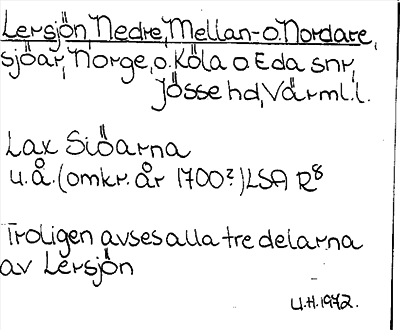 Lersjön, Nedre, Mellan- o. Nordare,
sjöar, Norge, o. Köla o Eda snr,
Jösse hd, Värml. l.
Lax Siöarna
u.å. (omkr. år 1700?) LSA R8
Troligen avses alla tre delarna
av Lersjön
U.H. 1972.